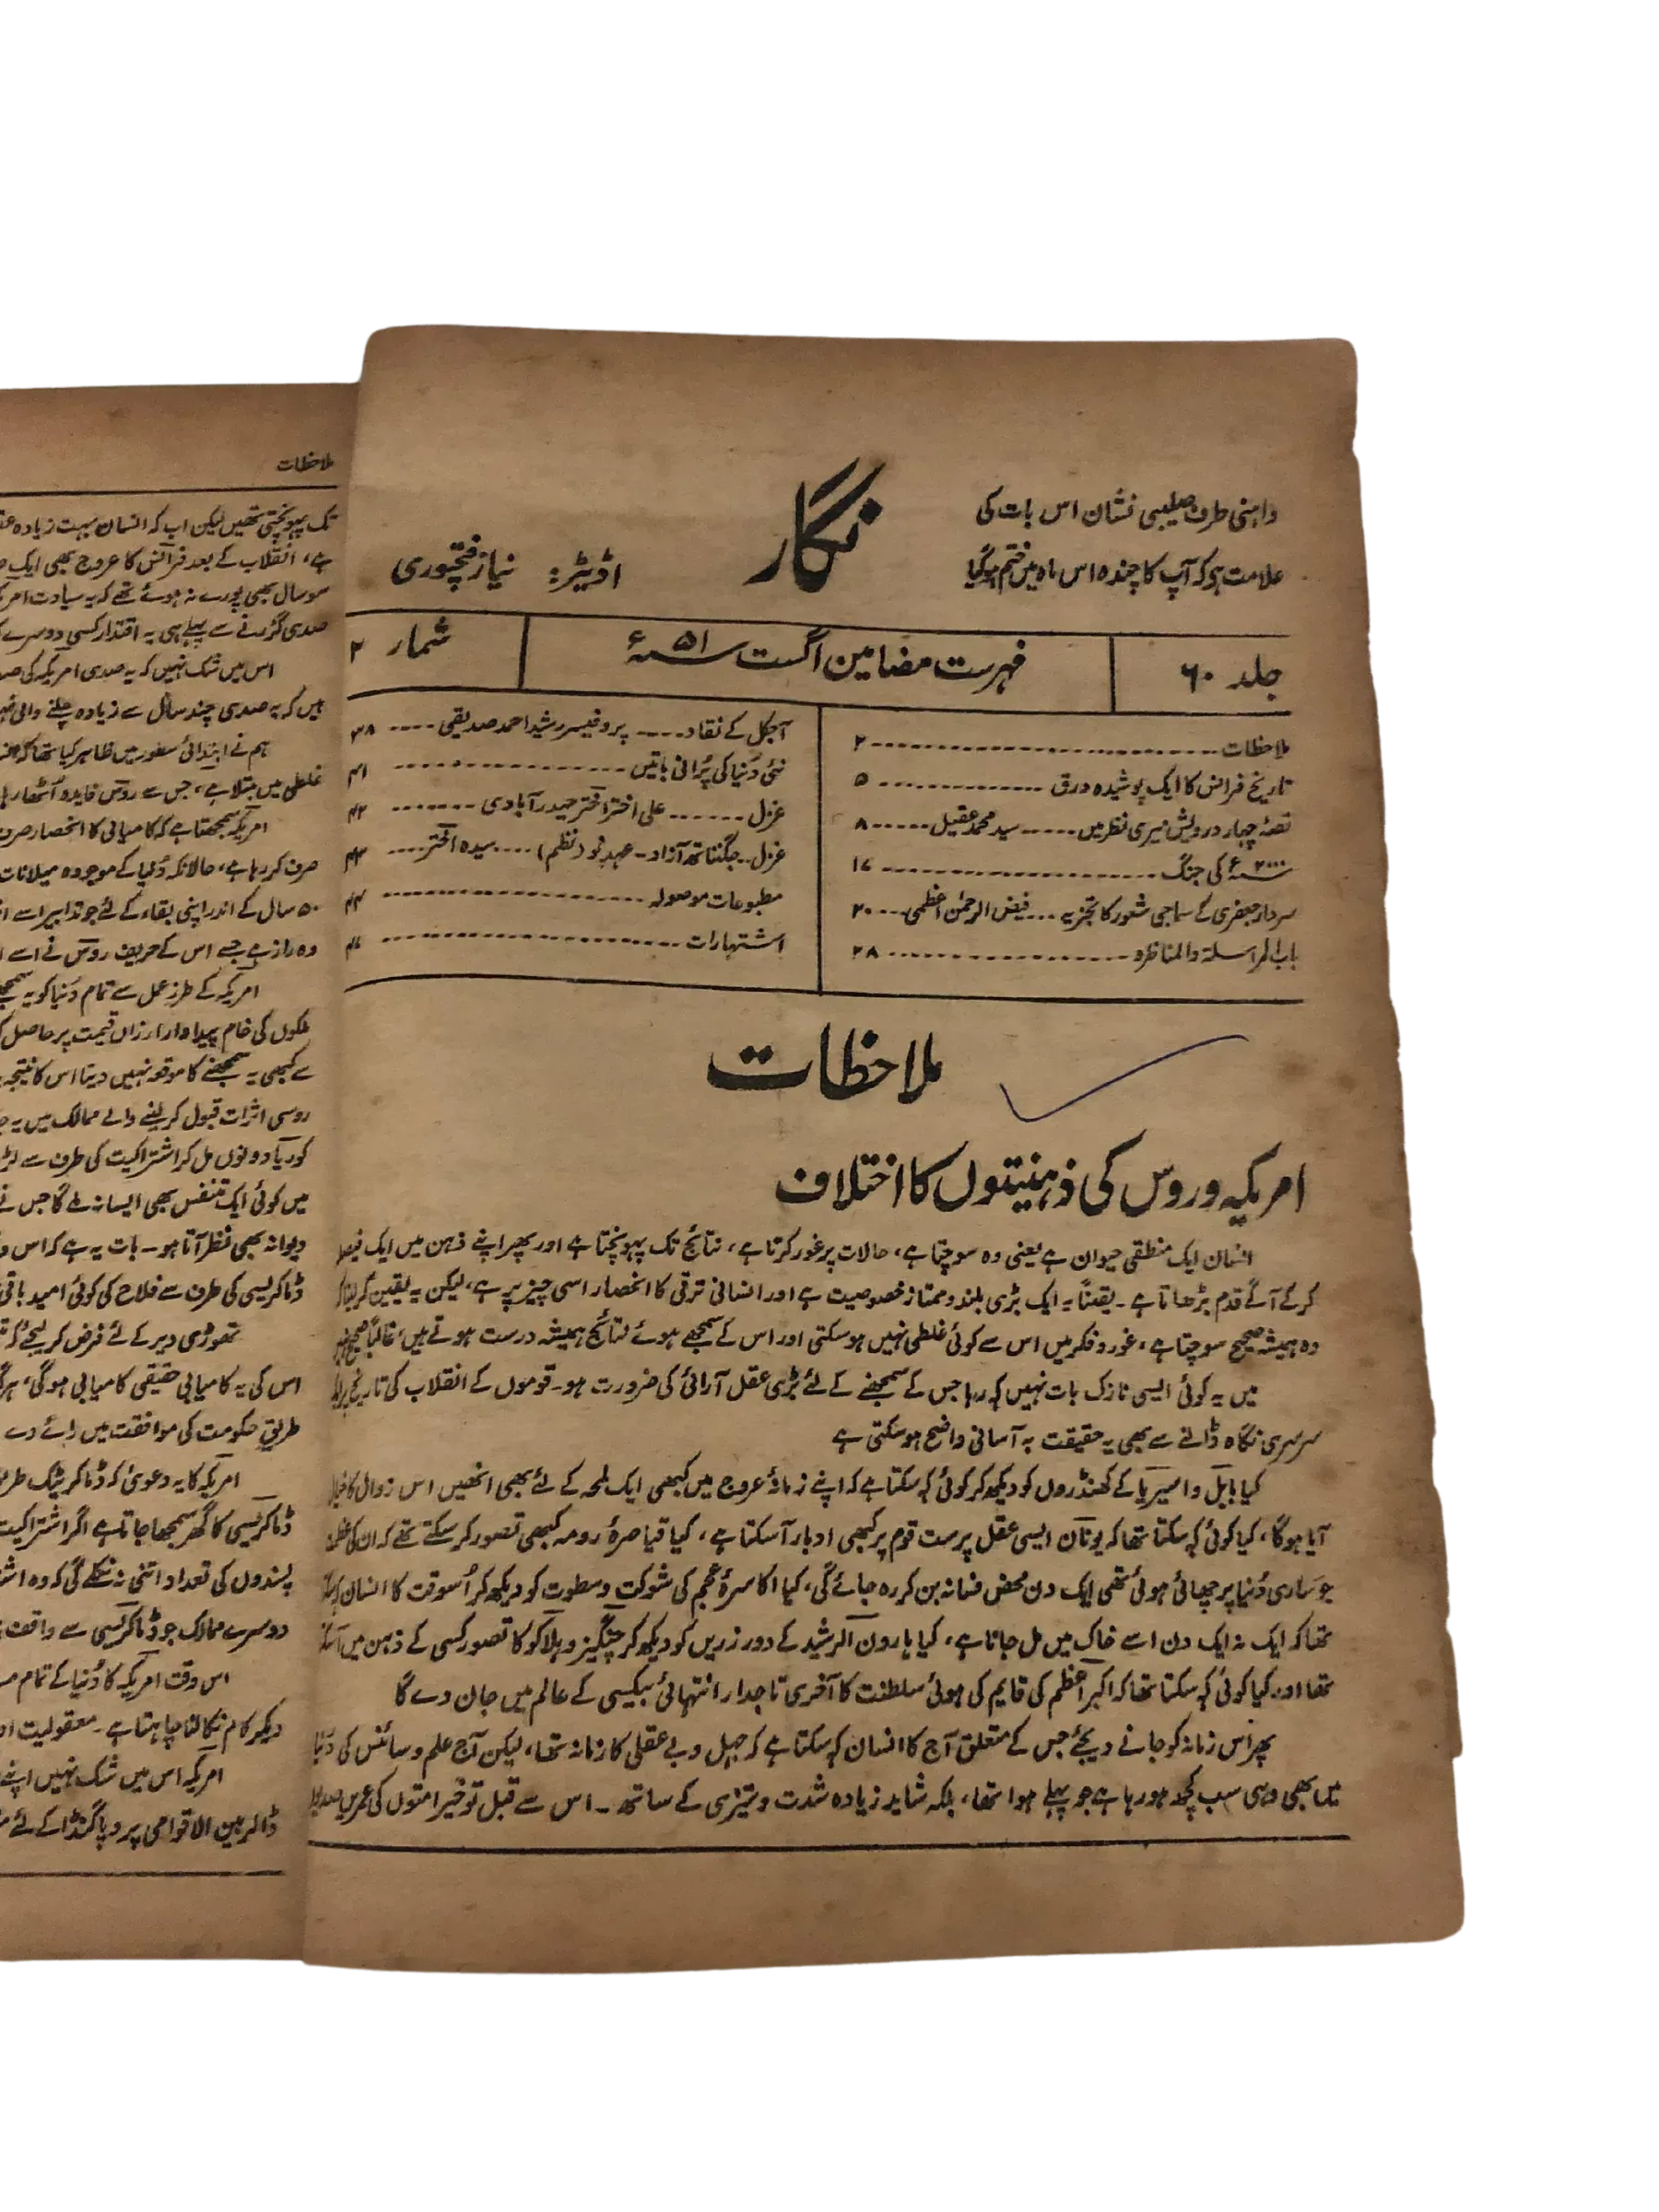 داہنی طرف صلیبی نشان اس بات کی
علامت ہو کہ آپ کا چندہ اس ماہ میں ختم ہوگیا
نگار
اڈیٹر: نیاز فتحپوری
جلد ۶۰
فہرست مضامین اگست ۵۱ سنہ ء
شمار ۲
ملاحظات ۲
تاریخ فرانس کا ایک پوشیدہ ورق ۵
قصۂ چہار درویش میری نظر میں سید محمد عقیل ۸
۲۰۰۰ سنہ ء کی جنگ ۱۷
سردار جعفری کے سماجی شعور کا تجزیہ فیض الرحمٰن اعظمی ۲۰
باب المراسلۃ والمناظرہ ۲۸
آجکل کے نقاد پروفیسر رشید احمد صدیقی ۳۸
نئی دُنیا کی پُرانی باتیں ۴۱
غزل علی اختر اختر حیدرآبادی ۴۲
غزل۔ جگنناتھ آزاد۔ عہدِ نو (نظم) سیدہ اختر ۴۳
مطبوعات موصولہ ۴۴
اشتہارات
ملاحظات
امریکہ و روس کی ذہنیتوں کا اختلاف
انسان ایک منطقی حیوان ہے یعنی وہ سوچتا ہے، حالات پر غور کرتا ہے، نتائج تک پہونچتا ہے اور پھر اپنے ذہن میں ایک فیصلہ
کرکے آگے قدم بڑھاتا ہے۔ یقیناً یہ ایک بڑی بلند و ممتاز خصوصیت ہے اور انسانی ترقی کا انحصار اسی چیز پر ہے، لیکن یہ یقین کرلینا کہ
وہ ہمیشہ صحیح سوچتا ہے، غور و فکر میں اس سے کوئی غلطی نہیں ہوسکتی اور اس کے سمجھے ہوئے نتائج ہمیشہ درست ہوتے ہیں، غالباً صحیح نہیں
میں یہ کوئی ایسی نازک بات نہیں کہ رہا جس کے سمجھنے کے لئے بڑی عقل آرائی کی ضرورت ہو۔ قوموں کے انقلاب کی تاریخ پر ایک
سرسری نگاہ ڈالنے سے بھی یہ حقیقت بہ آسانی واضح ہوسکتی ہے
کیا بابل و اسیریا کے کھنڈروں کو دیکھ کر کوئی کہ سکتا ہے کہ اپنے زمانۂ عروج میں کبھی ایک لمحہ کے لئے بھی انھیں اس زوال کا خیال
آیا ہوگا، کیا کوئی کہ سکتا تھا کہ یونان ایسی عقل پرست قوم پر کبھی ادبار آسکتا ہے، کیا قیاصرۂ رومہ کبھی تصور کرسکتے تھے کہ ان کی عظمت
جو ساری دُنیا پر چھائی ہوئی تھی ایک دن محض فسانہ بن کر رہ جائے گی، کیا اکاسرۂ عجم کی شوکت و سطوت کو دیکھ کر اُسوقت کا انسان کہہ سکتا
تھا کہ ایک نہ ایک دن اسے خاک میں مل جانا ہے، کیا ہارون الرشید کے دور زریں کو دیکھ کر چنگیز و ہلاکو کا تصور کسی کے ذہن میں آسکتا
تھا اور کیا کوئی کہ سکتا تھا کہ اکبر اعظم کی قایم کی ہوئی سلطنت کا آخری تاجدار انتہائی بیکسی کے عالم میں جان دے گا
پھر اس زمانہ کو جانے دیجئے جس کے متعلق آج کا انسان کہ سکتا ہے کہ جہل و بے عقلی کا زمانہ تھا، لیکن آج علم و سائنس کی دُنیا
میں بھی وہی سب کچھ ہورہا ہے جو پہلے ہوا تھا، بلکہ شاید زیادہ شدت و تیزی کے ساتھ۔ اس سے قبل تو خیر امتوں کی عمریں صدیوں
ملاحظات
تک پہونچتی تھیں لیکن اب کہ انسان بہت زیادہ
ہے، انقلاب کے بعد فرانس کا عروج بھی ایک
سو سال بھی پورے نہ ہوئے تھے کہ یہ سیادت
صدی گزرنے سے پہلے ہی یہ اقتدار کسی دوسرے
اس میں شک نہیں کہ یہ صدی امریکہ کی
ہیں کہ یہ صدی چند سال سے زیادہ چلنے والی
ہم نے ابتدائی سطور میں ظاہر کیا تھا کہ
غلطی میں مبتلا ہے، جس سے روس فایدہ اُٹھا رہا
امریکہ سمجھتا ہے کہ کامیابی کا انحصار صرف
صرف کر رہا ہے، حالانکہ دُنیا کے موجودہ میلانات
۵۰ سال کے اندر اپنی بقاء کے لئے جو تدابیر اسے
وہ راز ہے جسے اس کے حریف روس نے اسے
امریکہ کے طرز عمل سے تمام دُنیا کو یہ
ملکوں کی خام پیداوار ارزاں قیمت پر حاصل
سے کبھی یہ سمجھنے کا موقعہ نہیں دیتا اس کا نتیجہ
روسی اثرات قبول کرلینے والے ممالک میں یہ
کوریا دونوں مل کر اشتراکیت کی طرف سے
میں کوئی ایک متنفس بھی ایسا نہ ملے گا جس نے
دیوانہ بھی نظر آتا ہو۔ بات یہ ہے کہ اس
ڈماکریسی کی طرف سے فلاح کی کوئی امید باقی
تھوڑی دیر کے لئے فرض کر لیجئے کہ
اس کی یہ کامیابی حقیقی کامیابی ہوگی،
طریق حکومت کی موافقت میں رائے دے
امریکہ کا یہ دعویٰ کہ ڈماکریٹک
ڈماکریسی کا گھر سمجھا جاتا ہے اگر اشتراکیت
پسندوں کی تعداد اتنی نہ نکلے گی کہ وہ
دوسرے ممالک جو ڈماکریسی سے واقف
اس وقت امریکہ کا دُنیا کے تمام
دیکر کام نکالنا چاہتا ہے۔ معقولیت
امریکہ اس میں شک نہیں اپنے
ڈالر بین الاقوامی پروپاگنڈا کے لئے